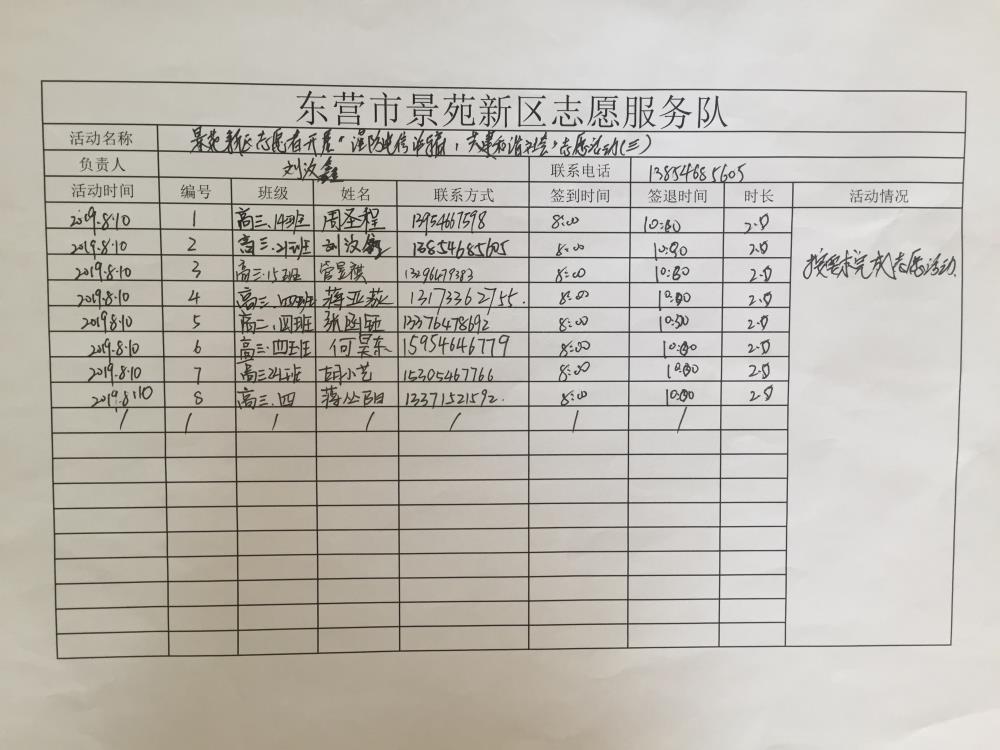 东营市景苑新区志愿服务队
活动名称 景苑新区志愿者开展“谨防电信诈骗,共建和谐社会”志愿活动(三)
负责人 刘汝鑫 联系电话 13854685605
活动时间 编号 班级 姓名 联系方式 签到时间 签退时间 时长 活动情况
2019.8.10 1 高三.14班 周圣程 1395467598 8:00 10:00 2.0
2019.8.10 2 高三.21班 刘汝鑫 13854685605 8:00 10:00 2.0
按要求完成志愿活动.
2019.8.10 3 高三.15班 管昱祺 13296479383 8:00 10:00 2.0
2019.8.10 4 高三.四班 蒋亚荻 13173362755. 8:00 10:00 2.0
2019.8.10 5 高二.四班 张函钰 13376478692 8:00 10:00 2.0
2019.8.10 6 高三.四五班 何昊东 15954646779 8:00 10:00 2.0
2019.8.10 7 高三24班 胡小艺 15305467766 8:00 10:00 2.0
2019.8.10 8 高三.四 蒋丛阳 13371521592. 8:00 10:00 2.0
/ / / / / / /